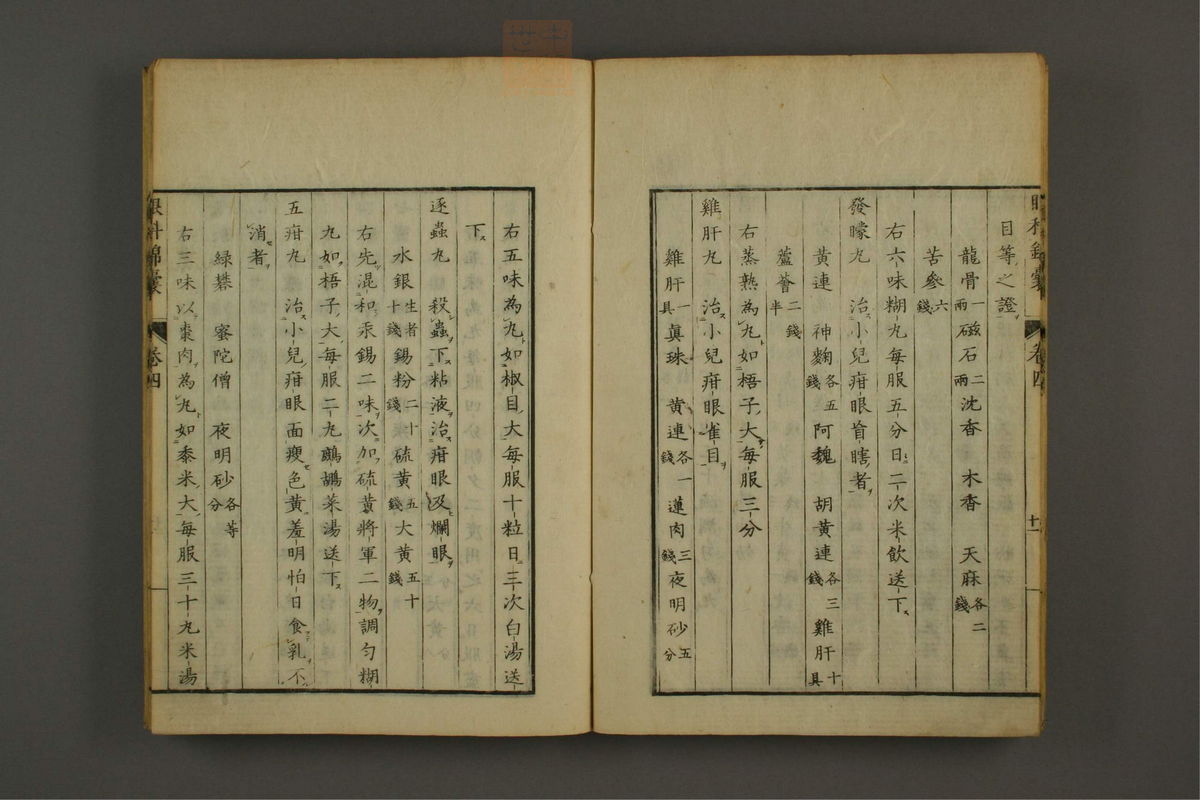 眼科錦囊　卷四　十一
目等之證ヲ
龍骨一兩　磁石二兩　沈香　木香　天麻各二錢
苦參六錢
右六味糊丸每服五分日二次米飲送下ス
發矇丸　治ス小兒疳眼盲瞎者ヲ
黃連　神麴各五錢　阿魏　胡黃連各三錢　雞肝十具
蘆薈二錢半
右蒸熟為丸如梧子大每服三分
雞肝丸　治ス小兒疳眼雀目ヲ
雞肝一具　眞珠　黃連各一錢　蓮肉三錢　夜明砂五分
右五味為丸如椒目大每服十粒日三次白湯送
下ス
逐蟲丸　殺蟲ヲ下粘液ヲ治ス疳眼及爛眼ヲ
水銀生者十錢　錫粉二十錢　硫黃五錢　大黃五十錢
右先混和汞錫二味ヲ次加硫黃將軍二物ヲ調勻糊
丸如梧子大每服二丸鷓鴣菜湯送下ス
五疳丸　治小兒疳眼面瘦色黃羞明怕日食乳不
消者ヲ
綠礬　蜜陀僧　夜明砂各等分
右三味以棗肉為丸如黍米大每服三十丸米湯
眼科錦囊　卷四